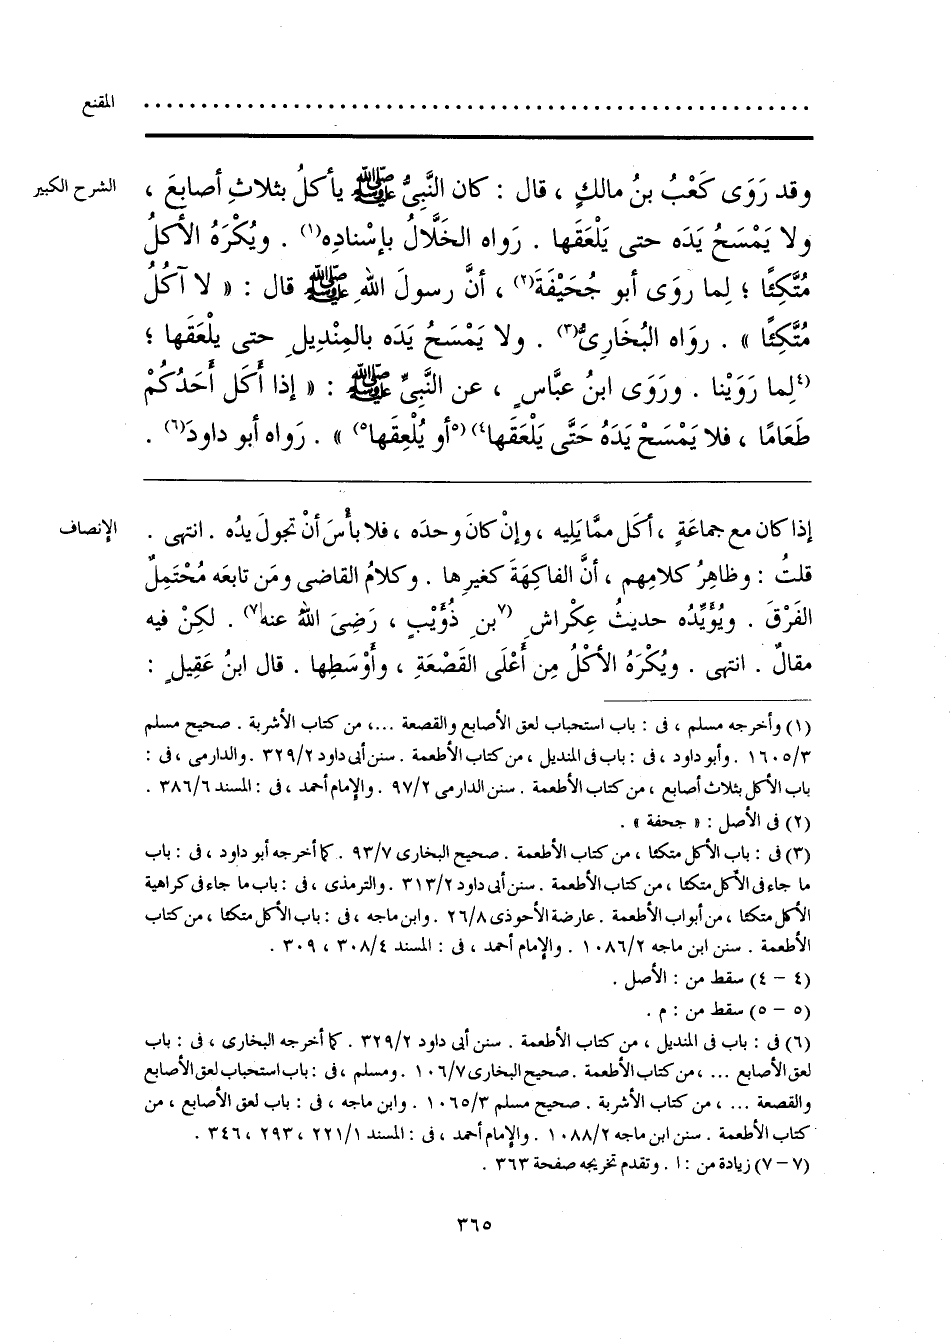 المقنع ..........................................................
الشرح الكبير
وقد رَوَى كَعْبُ بنُ مالكٍ ، قال : كان النَّبِىُّ ﷺ يأكلُ بثلاثِ أصابعَ ،
ولا يَمْسَحُ يَدَه حتى يَلْعَقَها . رَواه الخَلَّالُ بإسْنادِه(١) . ويُكْرَهُ الأكلُ
مُتَّكِئًا ؛ لِما روَى أبو جُحَيْفَةَ(٢) ، أنَّ رسولَ اللهِ ﷺ قال : « لا آكُلُ
مُتَّكِئًا » . رواه البُخَارِىُّ(٣) . ولا يَمْسَحُ يَدَه بالمِنْديلِ حتى يلْعَقَها ؛
(٤لِما رَوَيْنا . ورَوَى ابنُ عبَّاسٍ ، عن النَّبِىِّ ﷺ : « إذا أَكَل أَحَدُكُمْ
طَعَامًا ، فلا يَمْسَحْ يَدَهُ حَتَّى يَلْعَقَها٤) (٥أو يُلْعِقَها٥) » . رَواه أبو داودَ(٦) .
الإنصاف
إذا كان مع جماعَةٍ ، أكَل ممَّا يَلِيه ، وإنْ كانَ وحدَه ، فلا بأْسَ أنْ تجولَ يدُه . انتهى .
قلتُ : وظاهِرُ كلامِهم ، أنَّ الفاكِهَةَ كغيرِها . وكلامُ القاضى ومَن تابعَه مُحْتَمِلٌ
الفَرْقَ . ويُؤَيِّدُه حديثُ عِكْراشِ (٧بنِ ذُؤَيْبٍ ، رَضِىَ اللهُ عنه٧) . لكِنْ فيه
مقالٌ . انتهى . ويُكْرَهُ الأكْلُ مِن أعْلَى القَصْعَةِ ، وأوْسَطِها . قال ابنُ عَقِيلٍ :
(١) وأخرجه مسلم ، فى : باب استحباب لعق الأصابع والقصعة ...، من كتاب الأشربة . صحيح مسلم
١٦٠٥/٣ . وأبو داود ، فى : باب فى المنديل ، من كتاب الأطعمة . سنن أبى داود ٣٢٩/٢ . والدارمى ، فى :
باب الأكل بثلاث أصابع ، من كتاب الأطعمة . سنن الدارمى ٩٧/٢ . والإمام أحمد ، فى : المسند ٣٨٦/٦ .
(٢) فى الأصل : « جحفة » .
(٣) فى : باب الأكل متكئا ، من كتاب الأطعمة . صحيح البخارى ٩٣/٧ . كما أخرجه أبو داود ، فى : باب
ما جاء فى الأكل متكئا ، من كتاب الأطعمة . سنن أبى داود ٣١٣/٢ . والترمذى ، فى : باب ما جاء فى كراهية
الأكل متكئا ، من أبواب الأطعمة . عارضة الأحوذى ٢٦/٨ . وابن ماجه ، فى : باب الأكل متكئا ، من كتاب
الأطعمة . سنن ابن ماجه ١٠٨٦/٢ . والإمام أحمد ، فى : المسند ٣٠٨/٤ ، ٣٠٩ .
(٤ - ٤) سقط من : الأصل .
(٥ - ٥) سقط من : م .
(٦) فى : باب فى المنديل ، من كتاب الأطعمة . سنن أبى داود ٣٢٩/٢ . كما أخرجه البخارى ، فى : باب
لعق الأصابع ... ، من كتاب الأطعمة . صحيح البخارى ١٠٦/٧ . ومسلم ، فى : باب استحباب لعق الأصابع
والقصعة ... ، من كتاب الأشربة . صحيح مسلم ١٠٦٥/٣ . وابن ماجه ، فى : باب لعق الأصابع ، من
كتاب الأطعمة . سنن ابن ماجه ١٠٨٨/٢ . والإمام أحمد ، فى : المسند ٢٢١/١ ، ٢٩٣ ، ٣٤٦ .
(٧ - ٧) زيادة من : ا . وتقدم تخريجه صفحة ٣٦٣ .
٣٦٥